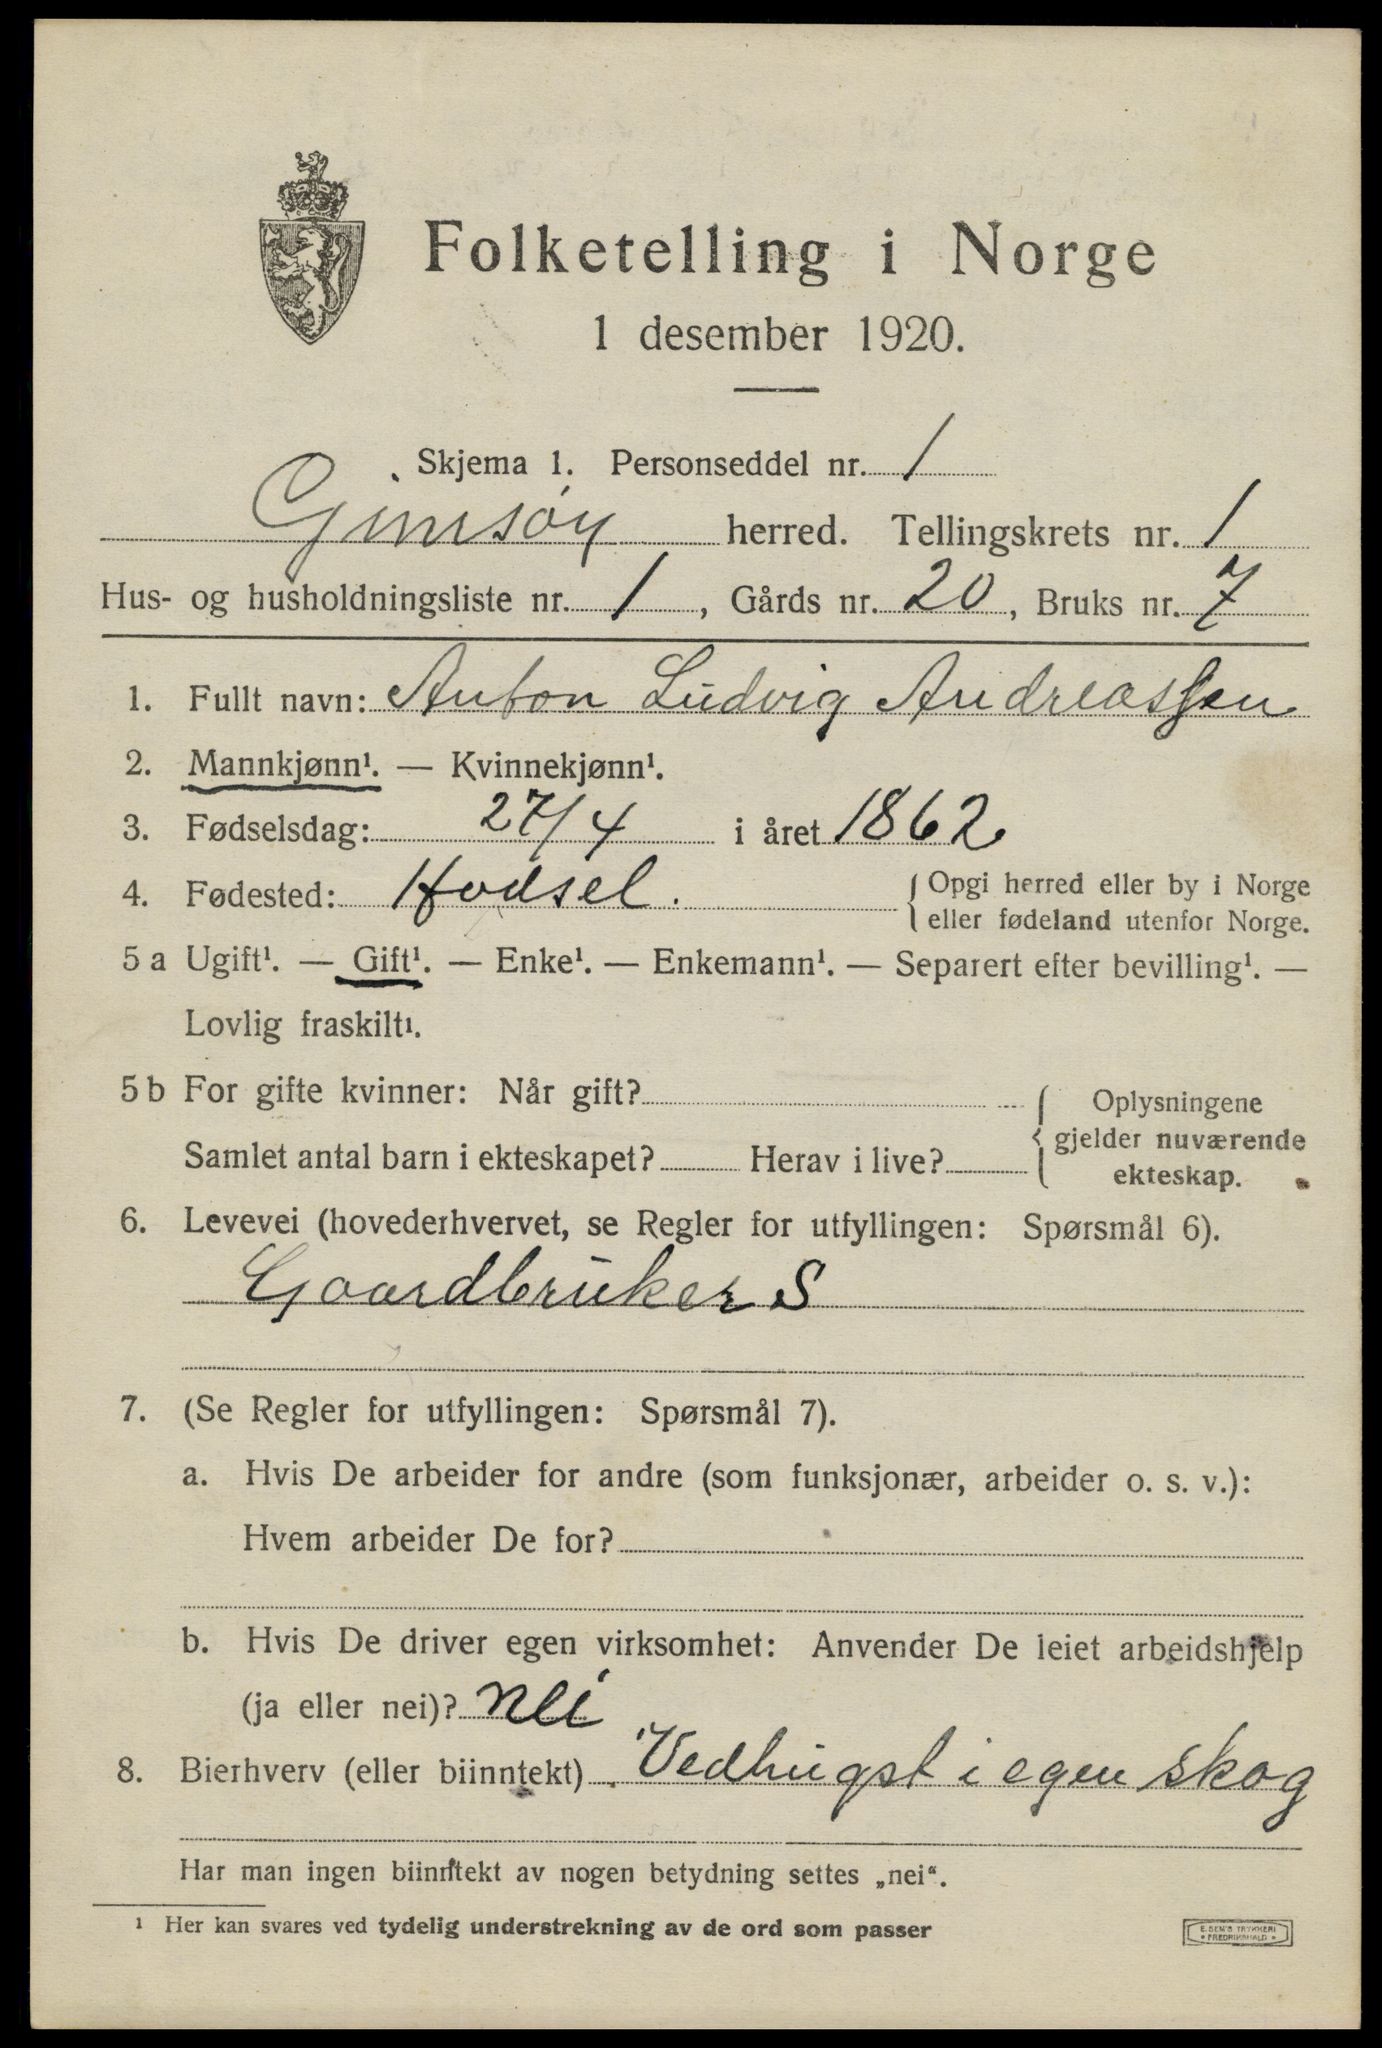 Folketelling i Norge
1 desember 1920.
Skjema 1. Personseddel nr. 1
Gimsøy herred. Tellingskrets nr. 1
Hus- og husholdningsliste nr. 1, Gårds nr. 20, Bruks nr. 7
1. Fullt navn: Anton Ludvig Andreassen
2. Mannkjønn¹. — Kvinnekjønn¹.
3. Fødselsdag: 27/4 i året 1862
4. Fødested: Hadsel. { Opgi herred eller by i Norge
eller fødeland utenfor Norge.
5 a Ugift¹. — Gift¹. — Enke¹. — Enkemann¹. — Separert efter bevilling¹. —
Lovlig fraskilt¹.
5 b For gifte kvinner: Når gift? { Oplysningene
gjelder nuværende
Samlet antal barn i ekteskapet? Herav i live?
ekteskap.
6. Levevei (hovederhvervet, se Regler for utfyllingen: Spørsmål 6).
Gaardbruker S
7. (Se Regler for utfyllingen: Spørsmål 7).
a. Hvis De arbeider for andre (som funksjonær, arbeider o. s. v.):
Hvem arbeider De for?
b. Hvis De driver egen virksomhet: Anvender De leiet arbeidshjelp
(ja eller nei)? nei
8. Bierhverv (eller biinntekt) Vedhugst i egen skog
Har man ingen biinntekt av nogen betydning settes „nei“.
¹ Her kan svares ved tydelig understrekning av de ord som passer
E. SEM'S TRYKKERI
• FREDRIKSHALD •